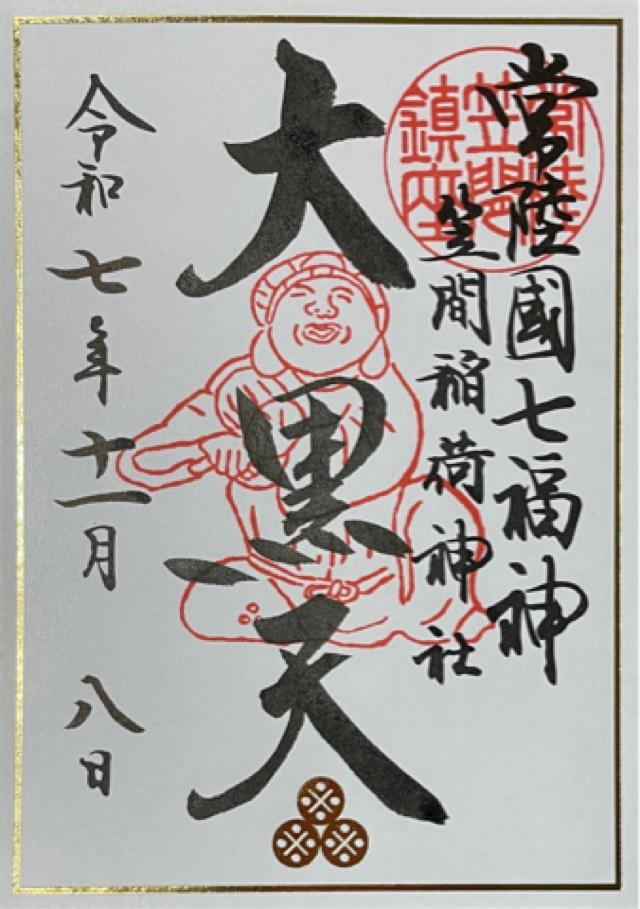 常陸國七福神
笠間稲荷神社
大黒天
令和七年十一月八日